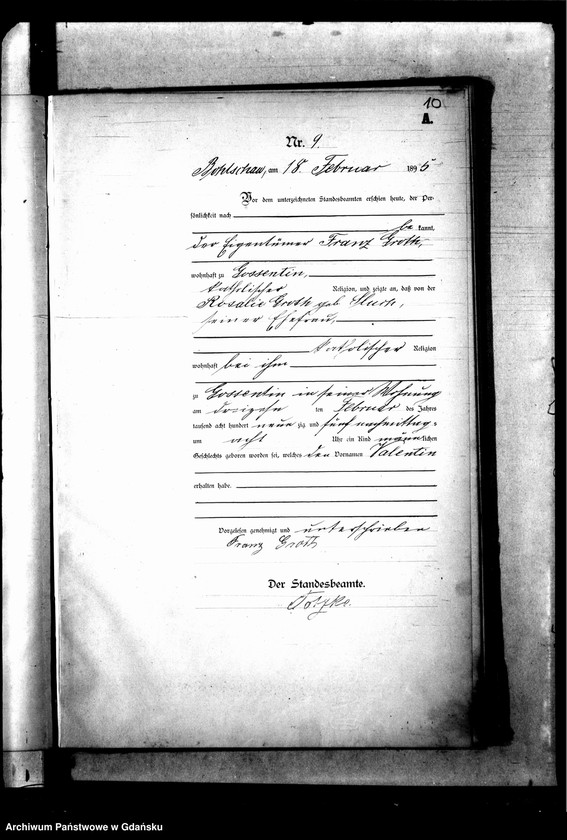 10
A.
Nr. 9.
Bohlschau, am 18 Februar 1895
Vor dem unterzeichneten Standesbeamten erschien heute, der Per-
sönlichkeit nach
be kannt,
der Eigentümer Franz Groth,
wohnhaft zu Gossentin,
katholischer Religion, und zeigte an, daß von der
Rosalie Groth geb.
seiner Ehefrau,
katholischer Religion
wohnhaft bei ihm
zu Gossentin in seiner Wohnung
am dreizehn ten Februar des Jahres
tausend acht hundert neun zig und fünf nachmittags
um acht Uhr ein Kind männlichen
Geschlechts geboren worden sei, welches den Vornamen Valentin
erhalten habe.
Vorgelesen genehmigt und unterschrieben
Franz Groth
Der Standesbeamte.
Archiwum Państwowe w Gdańsku